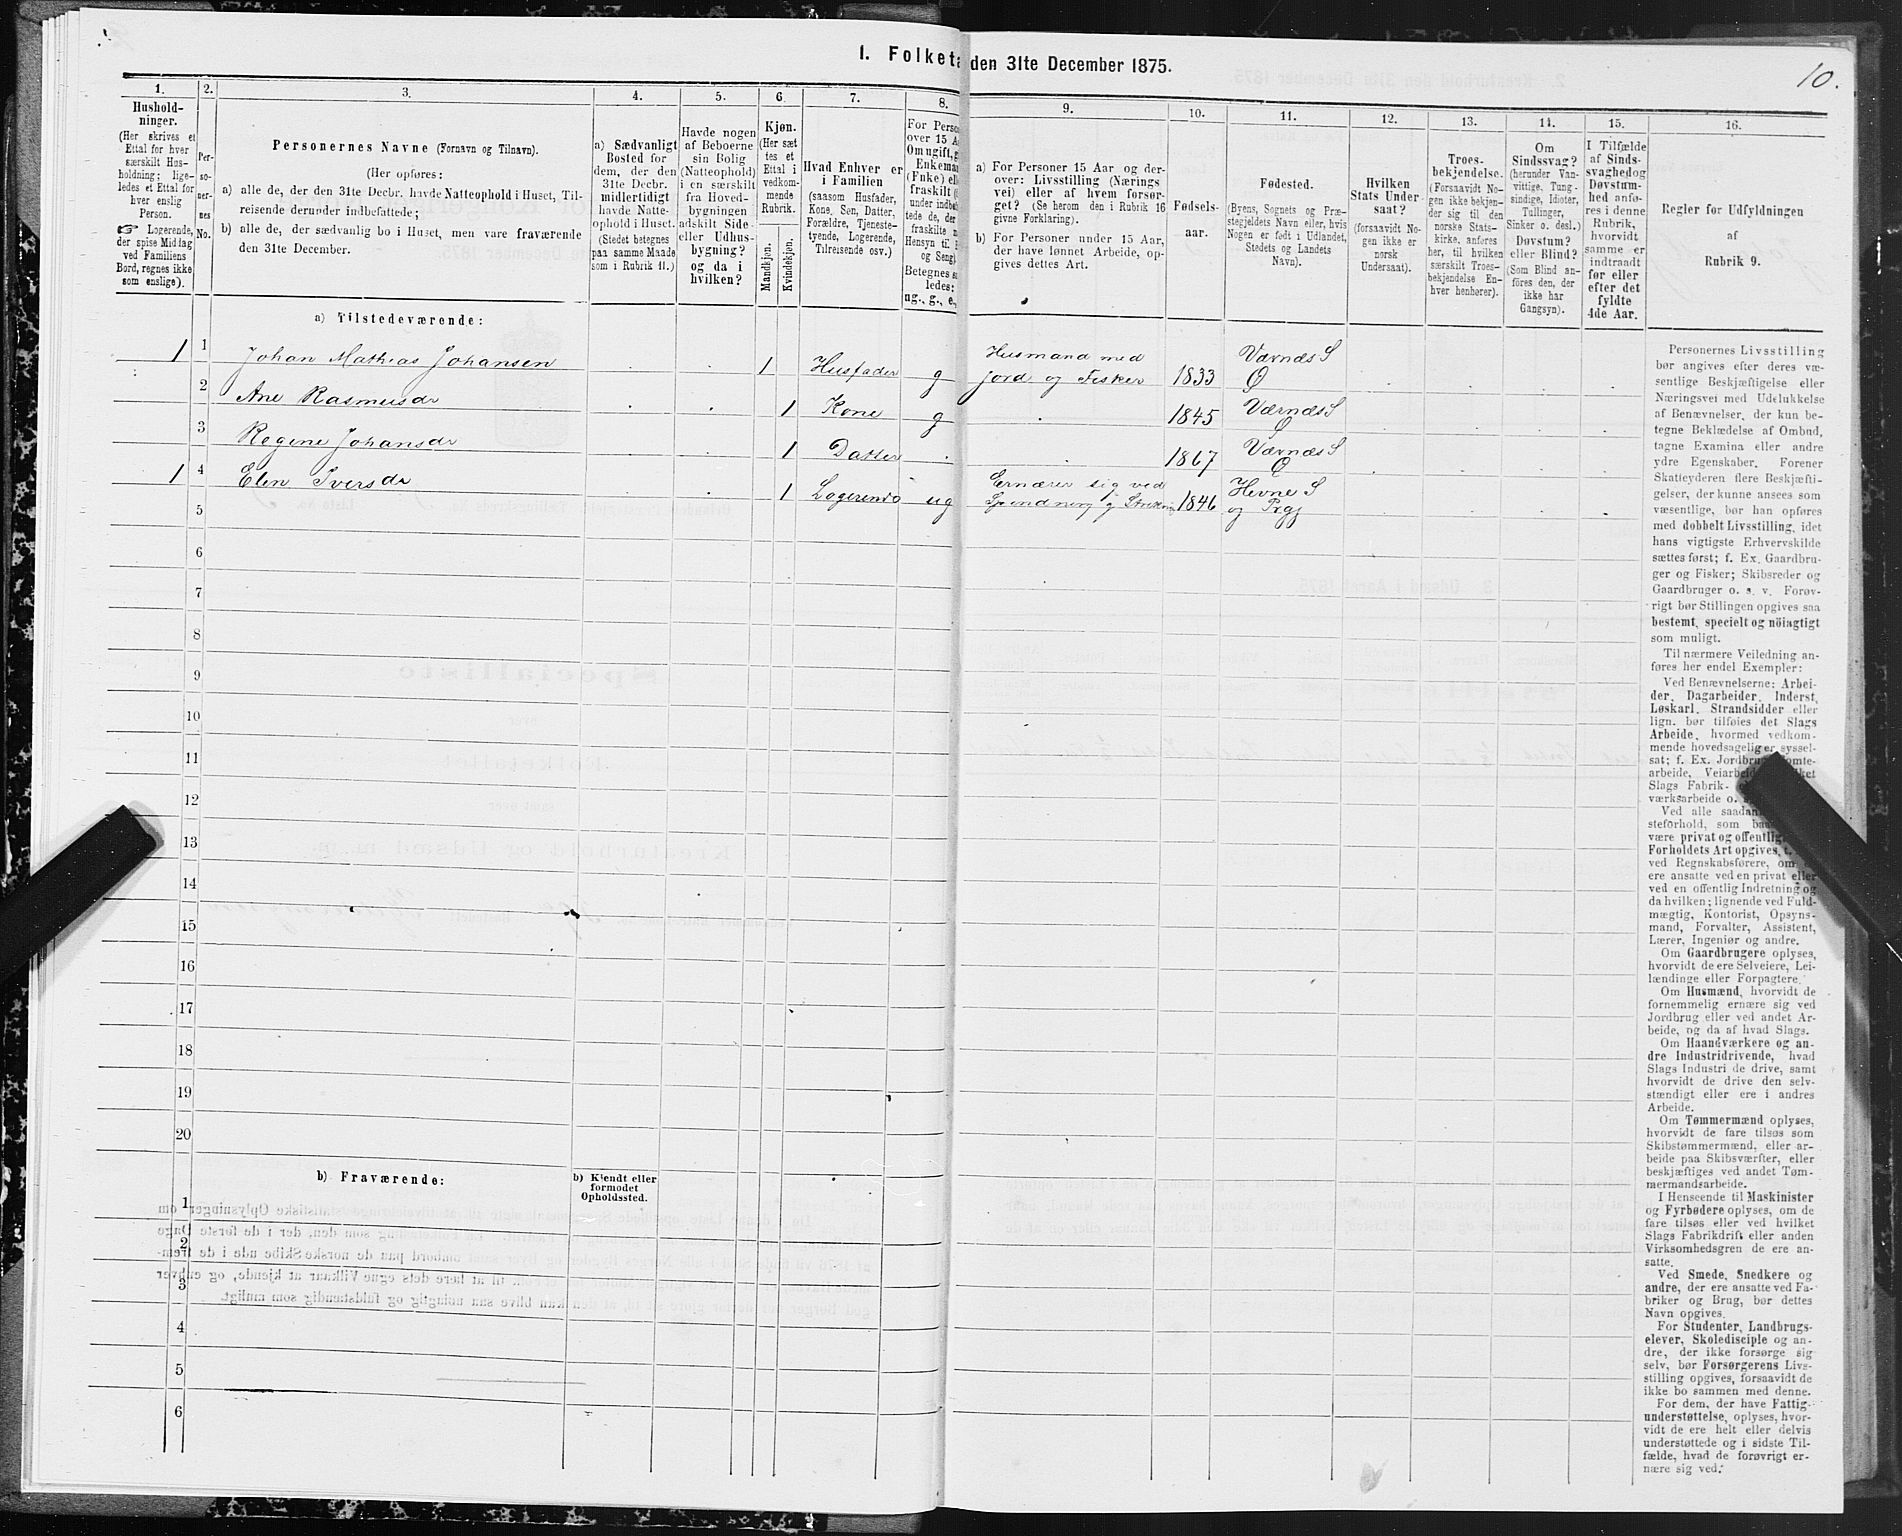 1. Folketa den 31te December 1875.
10.
1. 2. 3. 4. 5. 6. 7. 8. 9. 10. 11. 12. 13. 14. 15. 16.
Hushold-
ninger.
(Her skrives et
Ettal for hver
særskilt Hus-
holdning; lige-
ledes et Ettal for
hver enslig
Person.
Logerende,
der spise Middag
ved Familiens
Bord, regnes ikke
som enslige).
Per-
so-
ner-
nes
No.
Personernes Navne (Fornavn og Tilnavn).
(Her opføres:
a) alle de, der den 31te Decbr. havde Natteophold i Huset, Til-
reisende derunder indbefattede;
b) alle de, der sædvanlig bo i Huset, men vare fraværende
den 31te December.
a) Sædvanligt
Bosted for
dem, der den
31te Decbr.
midlertidigt
havde Natte-
ophold i Huset.
(Stedet betegnes
paa samme Maade
som i Rubrik 11.)
Havde nogen
af Beboerne
sin Bolig
(Natteophold)
i en særskilt
fra Hoved-
bygningen
adskilt Side-
eller Udhus-
bygning?
og da i
hvilken?
Kjøn.
(Her sæt
tes et
Ettal i
vedkom-
mende
Rubrik.
Mandkjøn.
Kvindekjøn.
Hvad Enhver er
i Familien
(saasom Husfader,
Kone, Søn, Datter,
Forældre, Tjeneste-
tyende, Logerende,
Tilreisende osv.)
For Perso
over 15 A
Om ugift, g
Enkema
(Enke) ell
fraskilt (
under indbe
tede de, der
fraskilte m
Hensyn til B
og Seng)
Betegnes s
ledes:
ug., g., e.,
a) For Personer 15 Aar og der-
over: Livsstilling (Nærings
vei) eller af hvem forsør-
get? (Se herom den i Rubrik 16
givne Forklaring).
b) For Personer under 15 Aar,
der have lønnet Arbeide, op-
gives dettes Art.
Fødsels-
aar.
Fødested.
(Byens, Sognets og Præ-
stegjeldets Navn eller, hvis
Nogen er født i Udlandet,
Stedets og Landets
Navn).
Hvilken
Stats Under-
saat?
(forsaavidt No-
gen ikke er
norsk
Undersaat).
Troes-
bekjendelse.
(Forsaavidt No-
gen ikke bekjen-
der sig til den
norske Stats-
kirke, anføres
her, til hvilken
særskilt Troes-
bekjendelse En-
hver henhører).
Om
Sindssvag?
(herunder Van-
vittige, Tung-
sindige, Idioter,
Tullinger,
Sinker o. desl.)
Døvstum?
eller Blind?
(Som Blind an-
föres den, der
ikke har
Gangsyn).
I Tilfælde
af Sinds-
svaghed og
Døvstum-
hed anfø-
res i denne
Rubrik,
hvorvidt
samme er
indtraadt
før eller
efter det
fyldte
4de Aar.
Regler for Udfyldningen
af
Rubrik 9.
a) Tilstedeværende:
1 1 Johan Mathias Johansen 1 Husfader g Husmand med jord og Fisker 1833 Værnæs S Ø
2 Ane Rasmusdr 1 Kone g 1845 Værnæs S Ø
3 Regine Johansdr 1 Datter 1867 Værnæs S Ø
1 4 Elen Iversdr 1 Logerende ug Ernærer sig ved Spinding og Strikning 1846 Hevne S og Prgj
5
6
7
8
9
10
11
12
13
14
15
16
17
18
19
20
b) Fraværende:
b) Kjendt eller
formodet
Opholdssted.
1
2
3
4
5
6
Personernes Livsstilling
bør angives efter deres væ-
sentlige Beskjæftigelse eller
Næringsvei med Udelukkelse
af Benævnelser, der kun be-
tegne Beklædelse af Ombud,
tagne Examina eller andre
ydre Egenskaber. Forener
Skatteyderen flere Beskjæfti-
gelser, der kunne ansees som
væsentlige, bør han opføres
med dobbelt Livsstilling, idet
hans vigtigste Erhvervskilde
sættes først; f. Ex. Gaardbru-
ger og Fisker; Skibsreder og
Gaardbruger o. s. v. Forøv-
rigt bør Stillingen opgives saa
bestemt, specielt og nöiagtigt
som muligt.
Til nærmere Veiledning an-
føres her endel Exempler:
Ved Benævnelserne: Arbei-
der, Dagarbeider, Inderst,
Løskarl, Strandsidder eller
lign. bør tilføies det Slags
Arbeide, hvormed vedkom-
mende hovedsagelig er syssel-
sat; f. Ex. Jordbru Tomte-
arbeide, Veiarbei ket
Slags Fabrik-
værksarbeide o.
Ved alle saadan
steforhold, som ba
være privat og offentlig
Forholdets Art opgives,
ved Regnskabsførere, om
ere ansatte ved en privat eller
ved en offentlig Indretning og
da hvilken; lignende ved Fuld-
mægtig, Kontorist, Opsyns-
mand, Forvalter, Assistent,
Lærer, Ingeniør og andre.
Om Gaardbrugere oplyses,
hvorvidt de ere Selveiere, Lei-
lændinge eller Forpagtere.
Om Husmænd, hvorvidt de
fornemmelig ernære sig ved
Jordbrug eller ved andet Ar-
beide, og da af hvad Slags.
Om Haandværkere og an-
dre Industridrivende, hvad
Slags Industri de drive, samt
hvorvidt de drive den selv-
stændigt eller ere i andres
Arbeide.
Om Tømmermænd oplyses,
hvorvidt de fare tilsøs som
Skibstømmermænd, eller ar-
beide paa Skibsværfter, eller
beskjæftiges ved andet Tøm-
mermandsarbeide.
I Henseende til Maskinister
og Fyrbødere oplyses, om de
fare tilsøs eller ved hvilket
Slags Fabrikdrift eller anden
Virksomhedsgren de ere an-
satte.
Ved Smede, Snedkere og
andre, der ere ansatte ved Fa-
briker og Brug, bør dettes
Navn opgives.
For Studenter, Landbrugs-
elever, Skoledisciple og an-
dre, der ikke forsørge sig
selv, bør Forsørgerens Livs-
stilling opgives, forsaavidt de
ikke bo sammen med denne.
For dem, der have Fattig-
understøttelse, oplyses, hvor-
vidt de ere helt eller delvis
understøttede og i sidste Til-
fælde, hvad de forøvrigt er-
nære sig ved.